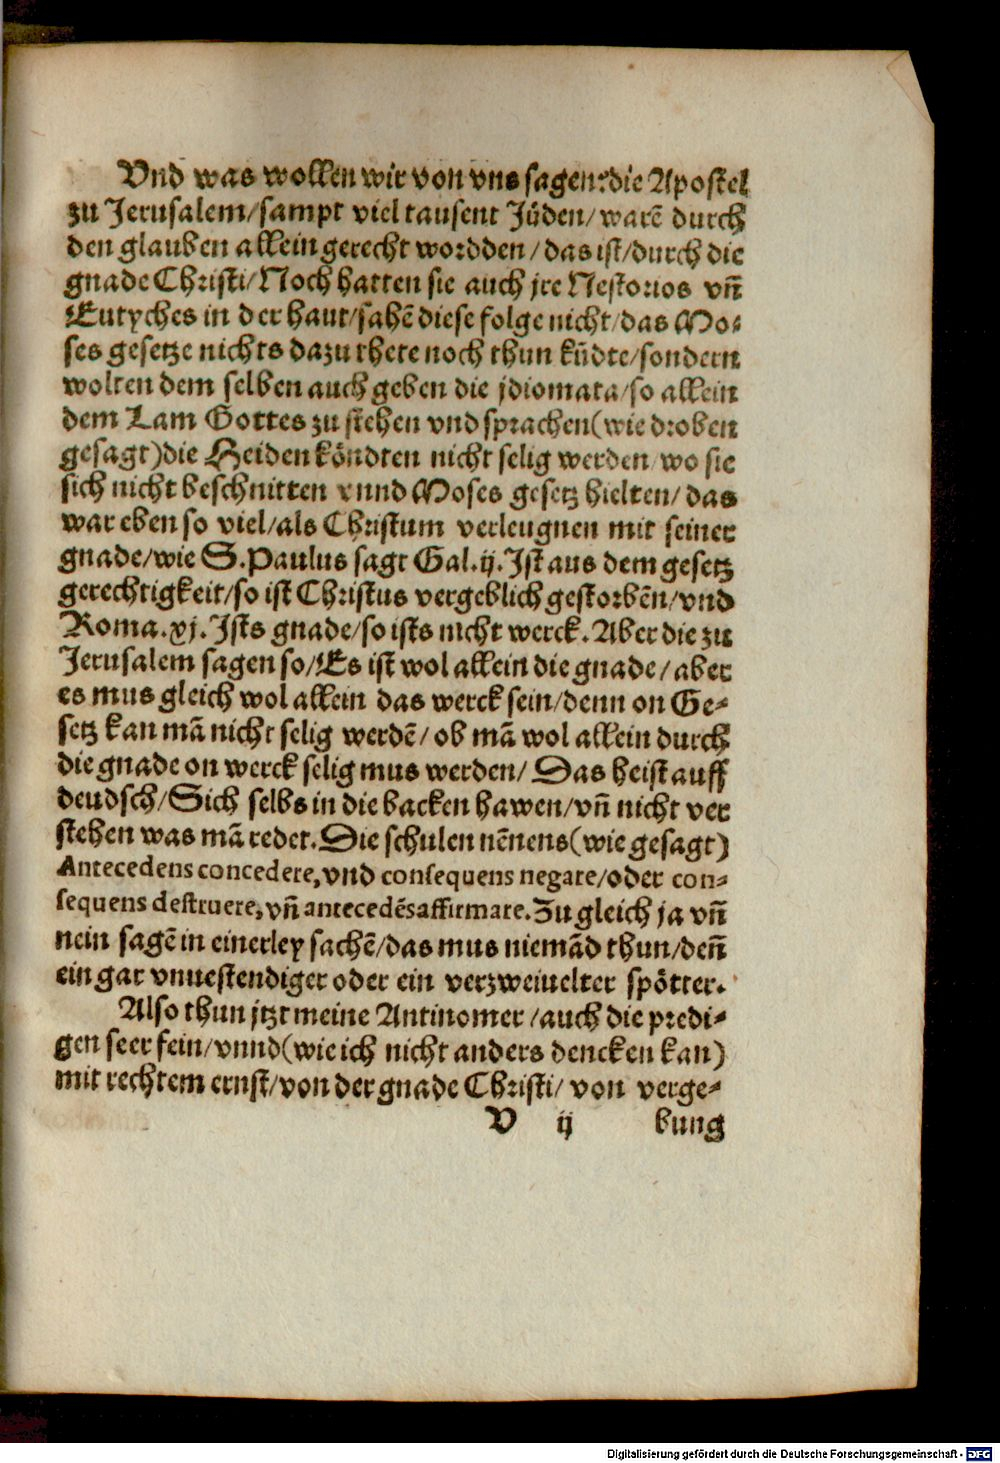 Vnd was wollen wir von vns sagen: die Apostel
zu Jerusalem/ sampt viel tausent Jüden/ warẽ durch
den glauben allein gerecht wordden/ das ist/ durch die
gnade Christi/ Noch hatten sie auch jre Nestorios vñ
Eutyches in der haut/ sahẽ diese folge nicht/ das Mo-
ses gesetze nichts dazu thete noch thun kũdte/ sondern
wolten dem selben auch geben die jdiomata/ so allein
dem Lam Gottes zu stehen vnd sprachen (wie droben
gesagt) die Heiden köndten nicht selig werden/ wo sie
sich nicht beschnitten vnnd Moses gesetz hielten/ das
war eben so viel/ als Christum verleugnen mit seiner
gnade/ wie S. Paulus sagt Gal. ij. Ist aus dem gesetz
gerechtigkeit/ so ist Christus vergeblich gestorbẽn/ vnd
Roma. xj. Ists gnade/ so ists nicht werck. Aber die zu
Jerusalem sagen so/ Es ist wol allein die gnade/ aber
es mus gleich wol allein das werck sein/ denn on Ge-
setz kan mã nicht selig werdẽ/ ob mã wol allein durch
die gnade on werck selig mus werden/ Das heist auff
deudsch/ Sich selbs in die backen hawen/ vñ nicht ver
stehen was mã redet. Die schulen nẽnens (wie gesagt)
Antecedens concedere, vnd consequens negare/ oder con-
sequens destruere, vñ antecedẽs affirmare. Zu gleich ja vñ
nein sagẽ in einerley sachẽ/ das mus niemãd thun/ deñ
ein gar vnuestendiger oder ein verzweiuelter spötter.
Also thun jtzt meine Antinomer/ auch die predi-
gen seer fein/ vnnd (wie ich nicht anders dencken kan)
mit rechtem ernst/ von der gnade Christi/ von verge-
V ij bung
Digitalisierung gefördert durch die Deutsche Forschungsgemeinschaft - DFG